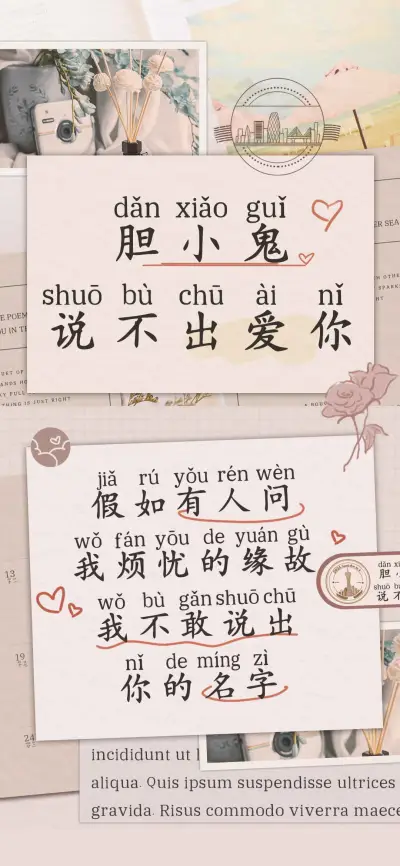 dǎn xiǎo guǐ
胆小鬼
shuō bù chū ài nǐ
说不出爱你
jiǎ rú yǒu rén wèn
假如有人问
wǒ fán yōu de yuán gù
我烦忧的缘故
wǒ bù gǎn shuō chū
我不敢说出
nǐ de míng zì
你的名字
13
19
24
incididunt ut l
aliqua. Quis ipsum suspendisse ultrices
gravida. Risus commodo viverra maece